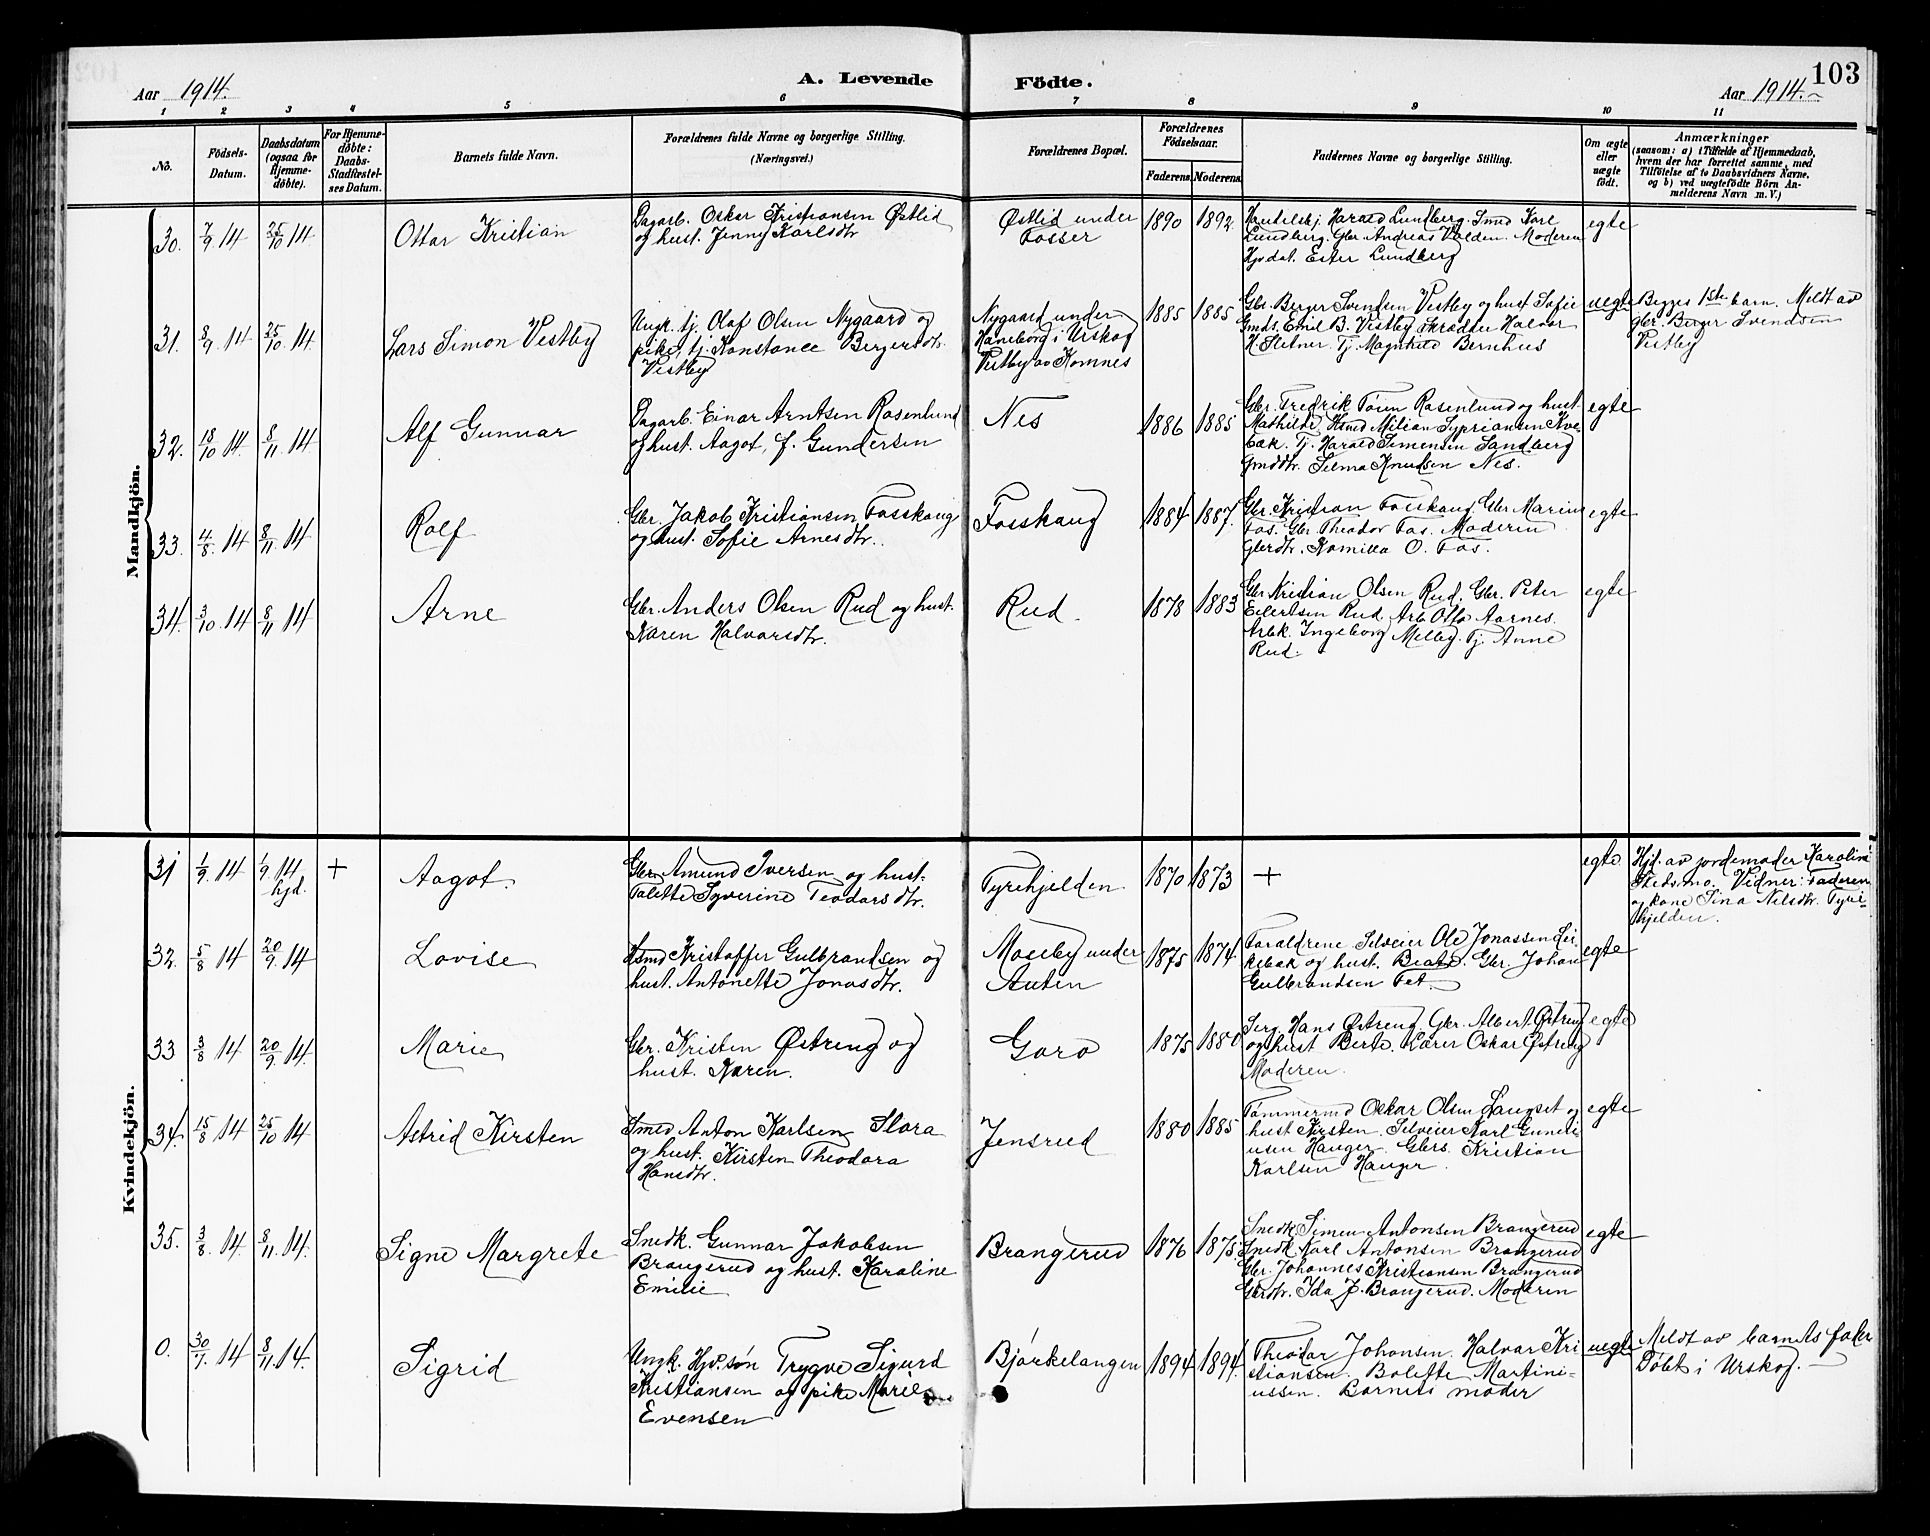 103
Aar 1914.
A. Levende
Födte.
Aar 1914.
1 2 3 4 5 6 7 8 9 10 11
No.
Födsels-
Datum.
Daabsdatum
(ogsaa for
Hjemme-
döbte).
For Hjemme-
döbte:
Daabs-
Stadfæstel-
ses Datum.
Barnets fulde Navn.
Forældrenes fulde Navne og borgerlige Stilling.
(Næringsvei.)
Forældrenes Bopæl.
Forældrenes
Födselsaar.
Faderens. Moderens.
Faddernes Navne og borgerlige Stilling.
Om ægte
eller
uægte
födt.
Anmærkninger
(saasom: a) i Tilfælde af Hjemmedaab,
hvem der har forrettet samme, med
Tilföielse af to Daabsvidners Navne,
og b) ved uægtefödte Börn An-
melderens Navn m. V.)
Mandkjön.
30. 7/9 14 25/10 14
Ottar Kristian
Dagarb. Oskar Kristiansen Østlid
og hust. Jenny Karlsdtr
Østlid under
Fosser
1890 1892
Handelsbj. Harald Lundberg. Smed Karl
Lundberg. Gbr. Andreas Valden. Moderen
Hjv.dat. Ester Lundberg
egte
31. 8/9 14 25/10 14.
Lars Simon Vestby
Ungk. tj. Olaf Olsen Nygaard og
pike, tj. Konstance Bergersdtr.
Vestby
Nygaard under
Haneborg i Urskog
Vestby av Komnes
1885 1885
Gbr. Berger Svendsen Vestby og hust Sofie
Gmds. Emil B. Vestby Skrædder Halvor
H. Sletner. Tj. Magnhild Bernhus
uegte
Begges 1ste barn. Meldt av
gbr. Berger Svendsen
Vestby
32. 18/10 14. 8/11 14
Alf Gunnar
Dagarb. Einar Arntsen Rosenlund
og hust. Aagot, f. Gundersen
Nes
1886 1885
Gbr. Fredrik Rosenlund og hust
Mathilde, Hsmd Milian Sypriansen Kve
bak. Tj. Harald Simensen Sandberg
Gmddtr. Selma Knudsen Nes.
egte
33. 4/8 14 8/11 14
Rolf
Gbr. Jakob Kristiansen Fosskaug
og hust. Sofie Arnesdtr.
Fosskaug
1884 1887.
Gbr. Kristian Fosskaug, Gbr. Marius
Fos. Gbr Theodor Fos. Moderen
Gbrdtr. Kamilla O. Fos.
egte
34. 3/10 14 8/11 14
Arne
Gbr. Anders Olsen Rud og hust.
Karen Halvorsdtr.
Rud.
1878 1883
Gbr. Kristian Olsen Rud, Gbr. Peter
Eilertsen Rud Arb. Otto Aarnes.
Arbk. Ingeborg Melby. Tj. Anne
Rud.
egte
Kvindekjön.
31 1/9 14 1/9 14
hjd.
+
Aagot.
Gbr. Amund Iversen og hust.
Talette Syverine Teodorsdtr.
Tyrihjelden
1870 1873
+
egte
Hjd. av jordemoder Karoline
Skedsmo. Vidner: Faderen
og kone Sina Nilsdtr. Tyri-
hjelden.
32. 5/8 14 20/9 14
Lovise
Hsmd Kristoffer Gulbrandsen og
hust. Antonette Jonasdtr.
Moseby under
Auten
1875 1874
Foraldrene. Selveier Ole Jonassen Lir
kebak og hust. Beate. Gbr. Johan
Gulbrandsen Fet.
egte
33 3/8 14 20/9 14.
Marie
Gbr. Kristen Østreng og
hust. Karen.
Garo
1875 1880
Serg. Hans Østreng. Gbr. Albert Østreng
og hust Berte. Lærer Oskar Østreng
Moderen.
egte
34. 15/8 14 25/10 14
Astrid Kirsten
Smed Anton Karlsen Slora
og hust. Kirsten Theodora
Hansdtr.
Jensrud
1880 1885
Tømmermd Oskar Olsen Langset og
hust Kirsten. Selveier Karl Guneri
usen Hauger. Gbrs. Kristian
Karlsen Hauger.
egte
35. 3/8 14 8/11 14.
Signe Margrete
Snedk. Gunnar Jakobsen
Brangerud og hust. Karoline
Emilie
Brangerud
1876 1875
Snedk. Simen Antonsen Brangerud
Snedk. Karl Antonsen Brangerud
Gbr. Johannes Kristiansen Brangerud
Gbrdtr. Ida J. Brangerud. Moderen
egte
0. 30/7 14 8/11 14.
Sigrid
Ungk. Hjv.søn Trygve Sigurd
Kristiansen og pike Marie
Evensen
Bjørkelangen
1894 1894.
Theodor Johansen. Halvor Kri
stiansen. Bolette Martini-
ussen. Barnets moder
uegte
Meldt av barnets fader
Døbt i Urskog.